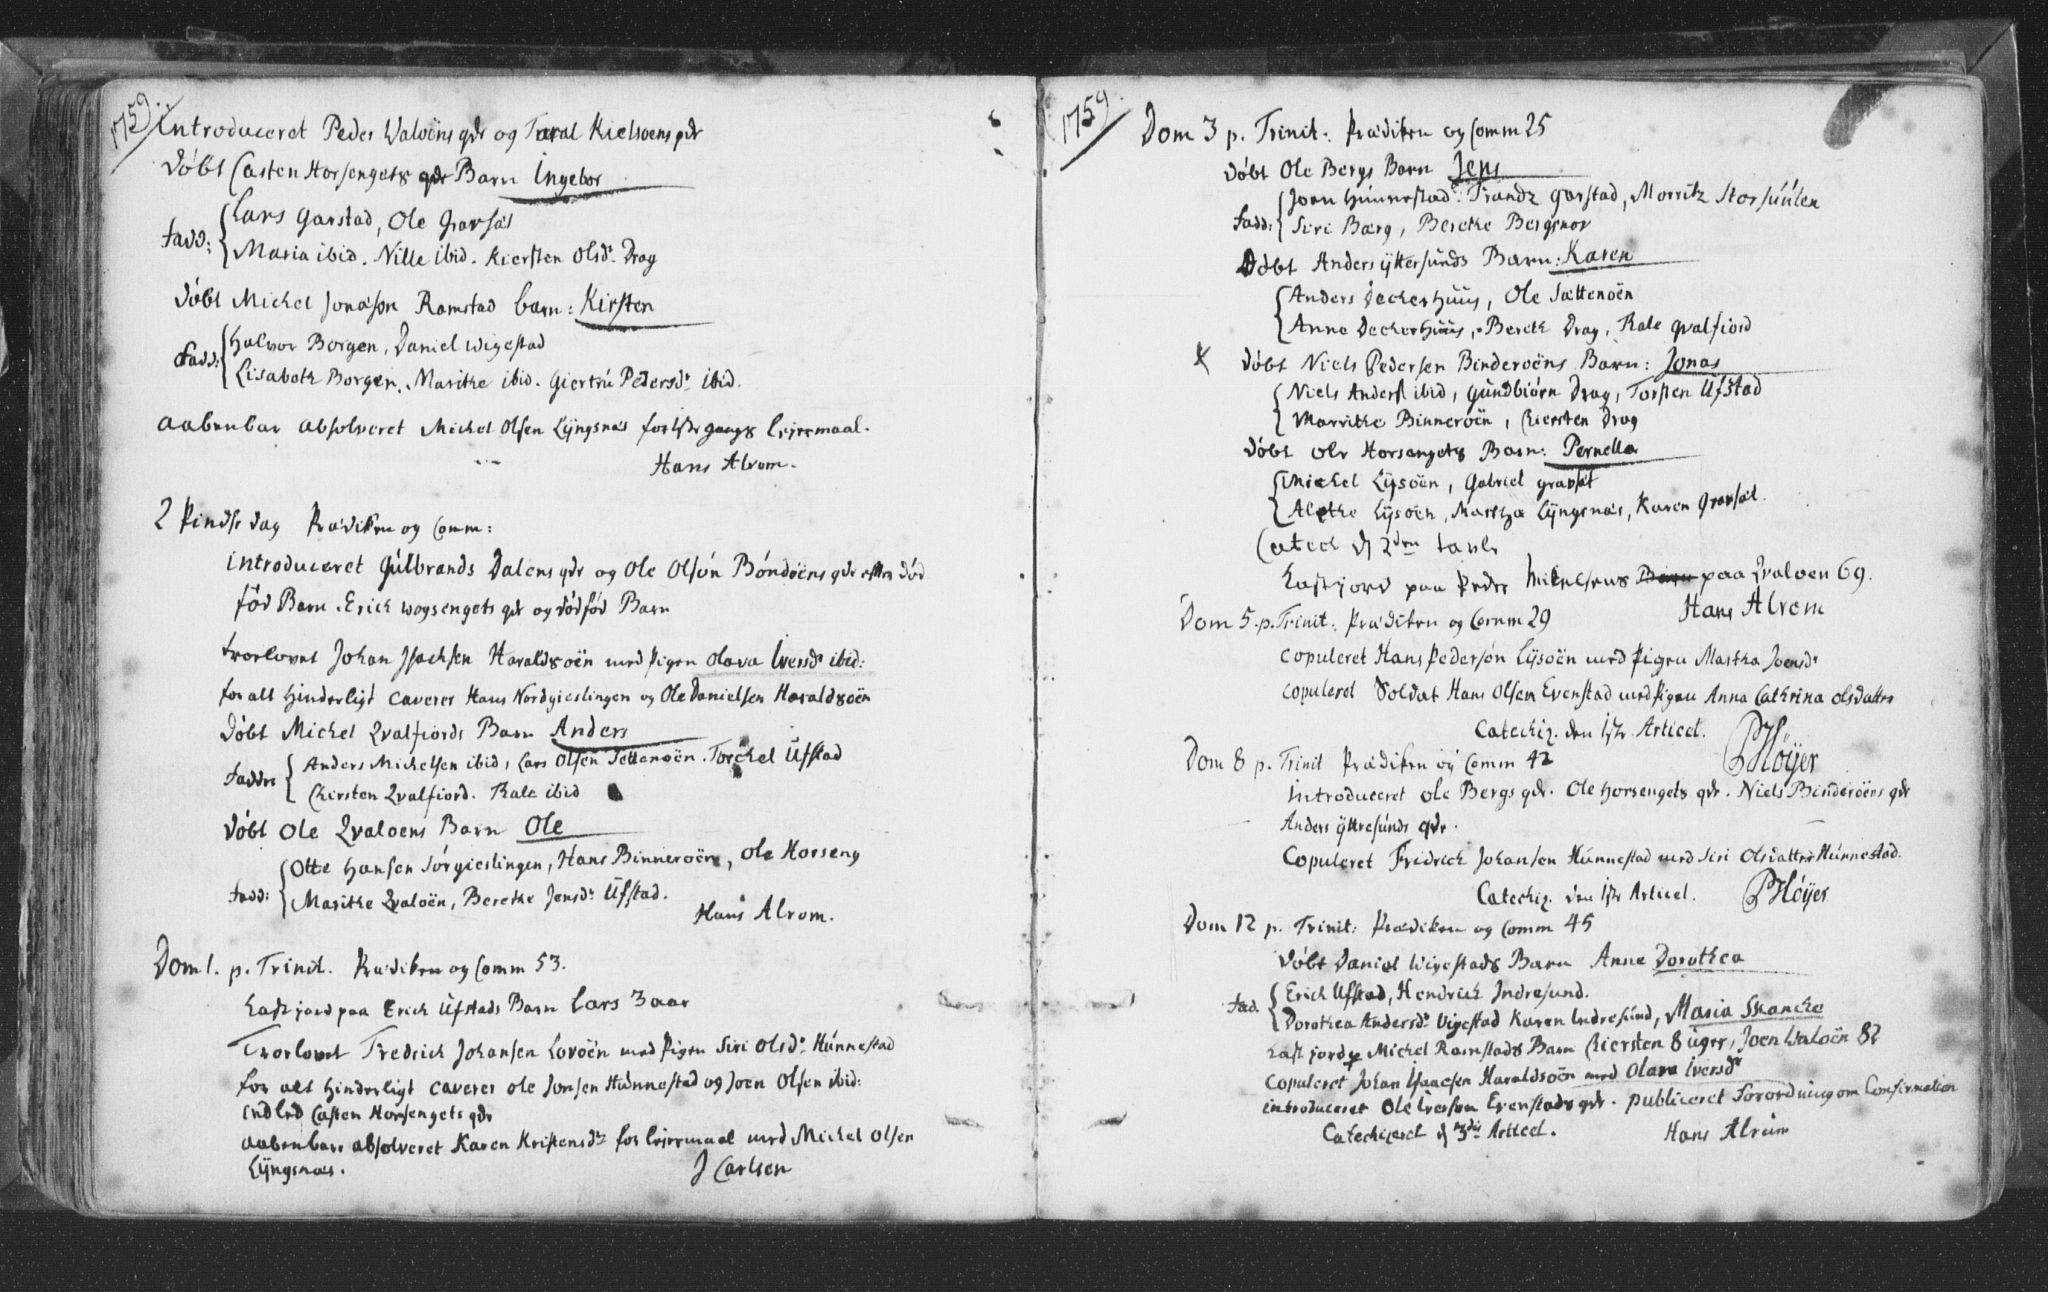 1759.
Introduceret Peder Waloëns qdr og Taral Kielsoens qdr
Døbt Casten Horsengets qdr Barn Ingebor
Fadd: Lars Garstad, Ole Gravsæt
Maria ibid. Nille ibid. Kiersten Olsdr. Drag
Døbt Michel Jonæson Ramstad barn: Kirsten
Fadd: Halvor Borgen, Daniel Wigestad
Lisabeth Borgen. Marithe ibid. Giertrú Pedersdr ibid.
Aabenbar absolveret Michel Olsen Lÿngsnæs for lejermaal.
Hans Alrom.
2 Pindse dag Prædiken og Comm:
introduceret Gúlbrands Dalens qdr og Ole Olsón Bóndöens qdr efter død
fød Barn. Erick wogsengets qdr og dødfød Barn
trorlovet Johan Isachsen Haraldsoën med Pigen Olava Iversdr ibid:
for alt Hinderligt caverer Hans Nordgieslingen og Ole Danielsen Haraldsoën
Døbt Michel Qvalfiords Barn Anders
Faddre Anders Michelsen ibid, Lars Olsen Settenoën. Torchel Ufstad
Chirsten Qvalfiord. Rale ibid
Døbt Ole Qvaloens Barn Ole
Fadd: Otte Hansen Sørgieslingen, Hans Binneroën, Ole Horseng
Marithe Qvaloën, Berethe Jensdr Ufstad.
Hans Alrom.
Dom 1. p. Trinit. Prædiken og Comm 53.
Kast jord paa Erich Ufstads Barn Lars 3 aar
Trorlovet Fredrich Johansen Lovoën med Pigen Siri Olsdr Húnnestad
for alt Hinderligt caverer Ole Jonsen Húnnestad og Joen Olsen ibid:
Indled Casten Horsengets qdr
Aabenbare absolveret Karen Kristensdr for lejermaal med Michel Olsen
Lÿngsnæs.
J Carlsen
1759.
Dom 3 p. Trinit: Prædiken og Comm 25
Døbt Ole Bergs Barn Jens
Fadd: Joen Húnnestad. Trandz Garstad, Morritz Storsúúlen
Siri Bærg, Berethe Bergsnov
Døbt Anders ÿttersunds Barn: Karen
Anders Deckerhúús, Ole Sættenoën
Anne Deckerhúús, Bereth Drag, Rale Qvalfiord
x Døbt Niels Pedersen Binderoëns Barn: Jonas
Niels Anders ibid, Gúndbiórn Drag, Torsten Ufstad
Marrithe Binneroën, Chiersten Drag
Døbt Ole Horsengets Barn: Pernella
Michel Lÿsoën, Gabriel Gravsæt
Alethe Lÿsoën, Martha Lÿngsnæs, Karen Gravsæt.
Catech d 2den tavle
Kast jord paa Peder Mikelsens Barn paa Qvaloen 69.
Hans Alrom
Dom 5. p. Trinit: Prædiken og Comm 29
Copuleret Hans Pedersón Lÿsoën med Pigen Martha Joensdr
Copuleret Soldat Hans Olsen Evenstad med Pigen Anna Cathrina Olsdatter
Catechiz. den 1ste Articel.
PHöÿer
Dom 8 p. Trinit Prædiken og Comm 42
Introduceret Ole Bergs qdr. Ole Horsengets qdr. Niels Binderöens qdr
Anders ÿttresúnds qdr.
Copuleret Fridrich Johansen Húnnestad med Siri Olsdatter Húnnestad.
Catechiz. den 1ste Articel.
PHöÿer
Dom 12 p. Trinit: Prædiken og Comm 45
Døbt Daniel Wigestads Barn Anne Dorothea
Fad. Erich Ufstad, Hendrich Indresund.
Dorothea Andersdr Vigestad Karen Indresúnd, Maria Skancke
Kast jord p Michel Ramstads Barn Chiersten 8 úger, Joen Waloën 82
Copuleret Johan Isaacsen Haraldsoën med Olava Iversdr
introduceret Ole Iversen Evenstads qdr. publiceret Forordning om Confirmation
Catechiceret d 3die Articel.
Hans Alrúm